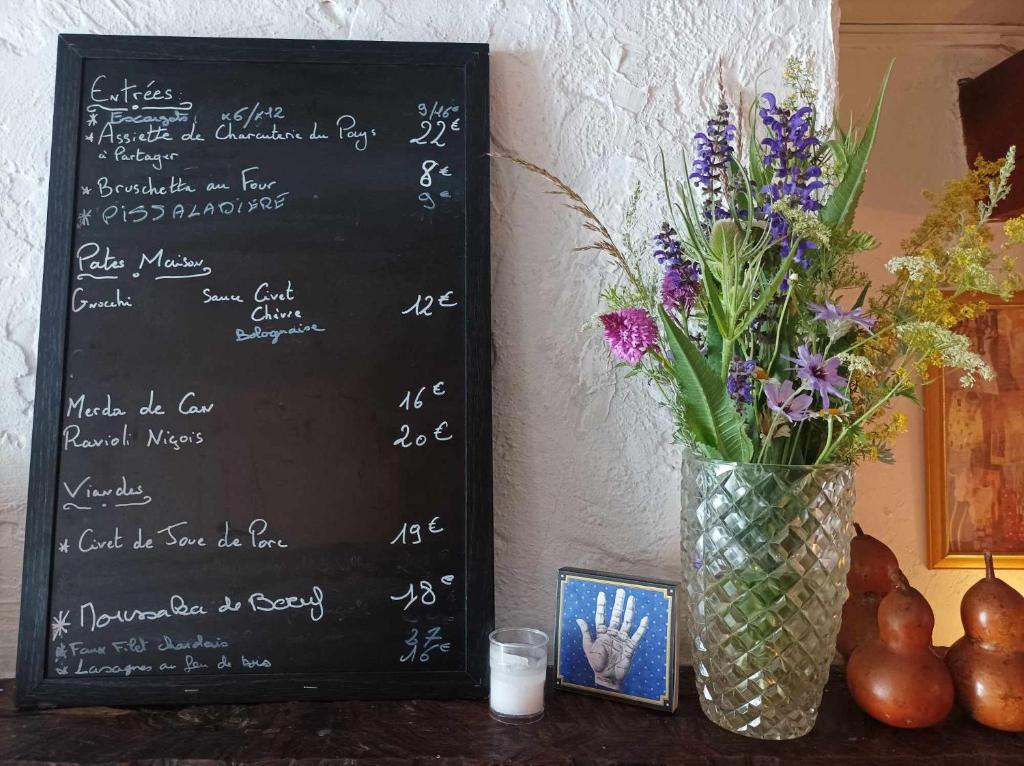 Entrées:
* Escargots x6/x12 9/16€
* Assiette de Charcuterie du Pays 22€
à Partager
* Bruschetta au Four 8€
* PISSALADIERE 9€
Pates Maison
Gnocchi Sauce Civet 12€
Chèvre
Bolognaise
Merda de Can 16€
Ravioli Niçois 20€
Viandes
* Civet de Joue de Porc 19€
* Moussaka de Boeuf 18€
* Faux Filet charolais 27€
* Lasagnes au feu de bois 16€